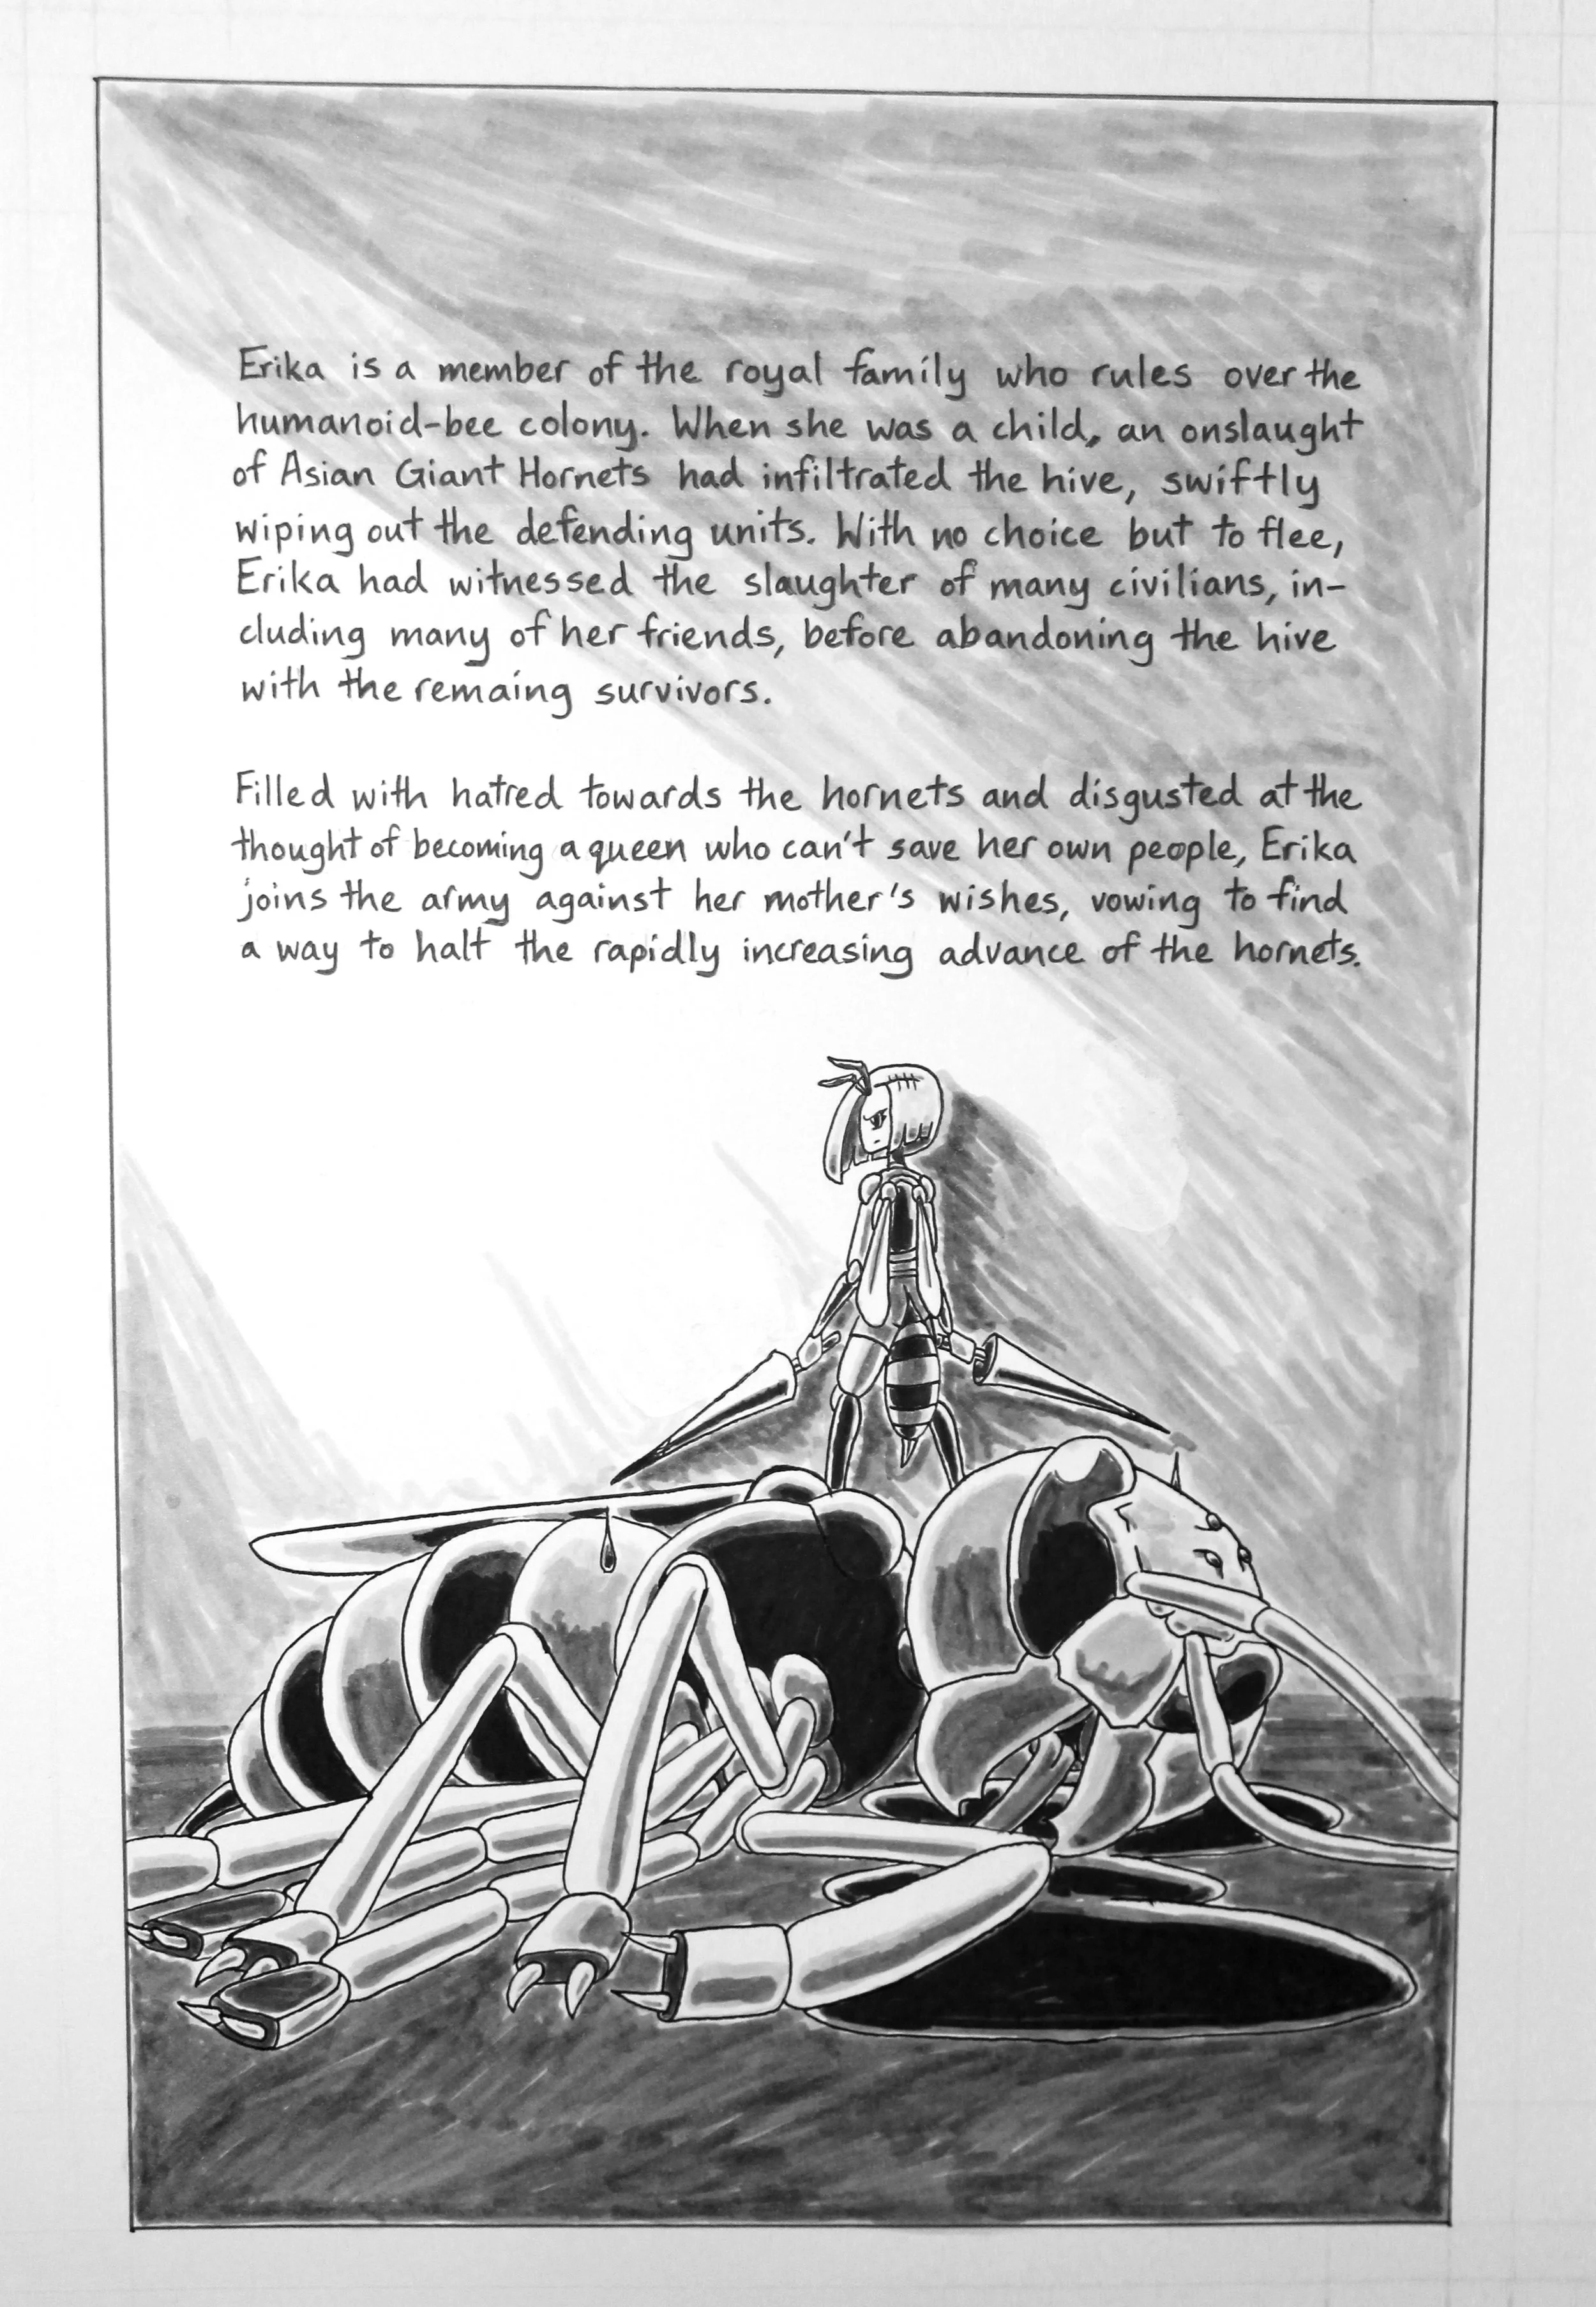 Erika is a member of the royal family who rules over the
humanoid-bee colony. When she was a child, an onslaught
of Asian Giant Hornets had infiltrated the hive, swiftly
wiping out the defending units. With no choice but to flee,
Erika had witnessed the slaughter of many civilians, in-
cluding many of her friends, before abandoning the hive
with the remaing survivors.
Filled with hatred towards the hornets and disgusted at the
thought of becoming a queen who can't save her own people, Erika
joins the army against her mother's wishes, vowing to find
a way to halt the rapidly increasing advance of the hornets.